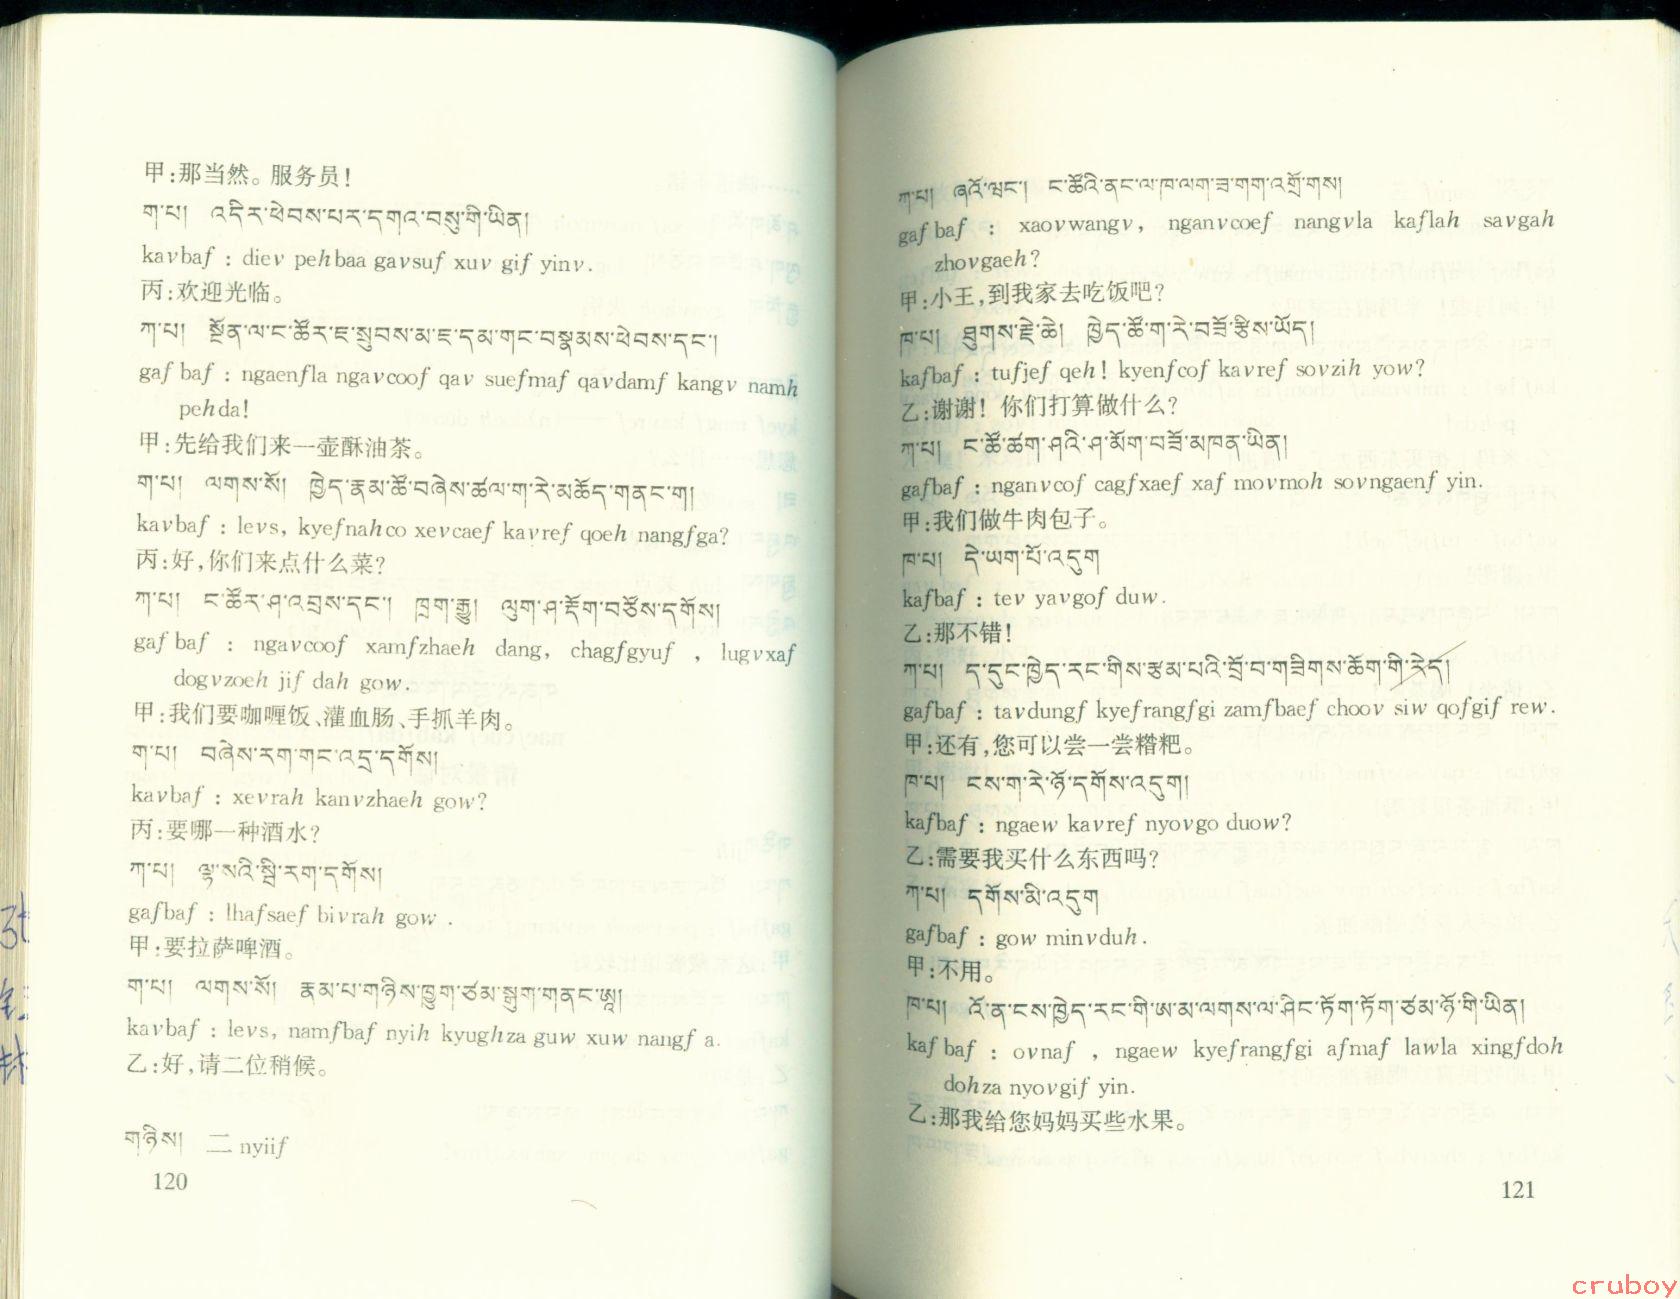 甲:那当然。服务员!
ག་པ། འདིར་ཕེབས་པར་དགའ་བསུ་གི་ཡིན།
kavbaf : diev pehbaa gavsuf xuv gif yinv.
丙:欢迎光临。
ཀ་པ། སྔོན་ལ་ང་ཚོར་ཇ་སྲུབས་མ་ཇ་དམ་གང་བསྣམས་ཕེབས་དང་།
gaf baf : ngaenfla ngavcoof qav suefmaf qavdamf kangv namh
pehda!
甲:先给我们来一壶酥油茶。
ག་པ། ལགས་སོ། ཁྱེད་རྣམ་ཚོ་བཞེས་ཚལ་ག་རེ་མཆོད་གནང་ག།
kavbaf : levs, kyefnahco xevcaef kavref qoeh nangfga?
丙:好,你们来点什么菜?
ཀ་པ། ང་ཚོར་ཤ་འབྲས་དང་། ཁྲག་རྒྱུ། ལུག་ཤ་རྡོག་བཙོས་དགོས།
gaf baf : ngavcoof xamfzhaeh dang, chagfgyuf , lugvxaf
dogvzoeh jif dah gow.
甲:我们要咖喱饭、灌血肠、手抓羊肉。
ག་པ། བཞེས་རག་གང་འདྲ་དགོས།
kavbaf : xevrah kanvzhaeh gow?
丙:要哪一种酒水?
ཀ་པ། ལྷ་སའི་སྦི་རག་དགོས།
gafbaf : lhafsaef bivrah gow .
甲:要拉萨啤酒。
ག་པ། ལགས་སོ། རྣམ་པ་གཉིས་ཁྱུག་ཙམ་སྒུག་གནང་ཨཱ།
kavbaf : levs, namfbaf nyih kyughza guw xuw nangf a.
乙:好,请二位稍候。
གཉིས། 二 nyiif
120
ཀ་པ། ཞའོ་ཝང་། ང་ཚོའི་ནང་ལ་ཁ་ལག་ཟ་གག་འགྲོ་གས།
gaf baf : xaovwangv, nganvcoef nangvla kaflah savgah
zhovgaeh?
甲:小王,到我家去吃饭吧?
ཁ་པ། ཐུགས་རྗེ་ཆེ། ཁྱེད་ཚོ་ག་རེ་བཟོ་རྩིས་ཡོད།
kafbaf : tufjef qeh! kyenfcof kavref sovzih yow?
乙:谢谢! 你们打算做什么?
ཀ་པ། ང་ཚོ་ཚག་ཤའི་ཤ་མོག་བཟོ་མཁན་ཡིན།
gafbaf : nganvcof cagfxaef xaf movmoh sovngaenf yin.
甲:我们做牛肉包子。
ཁ་པ། དེ་ཡག་པོ་འདུག
kafbaf : tev yavgof duw.
乙:那不错!
ཀ་པ། ད་དུང་ཁྱེད་རང་གིས་རྩམ་པའི་བྲོ་བ་གཟིགས་ཆོག་གི་རེད།
gafbaf : tavdungf kyefrangfgi zamfbaef choov siw qofgif rew.
甲:还有,您可以尝一尝糌粑。
ཁ་པ། ངས་ག་རེ་ཉོ་དགོས་འདུག།
kafbaf : ngaew kavref nyovgo duow?
乙:需要我买什么东西吗?
ཀ་པ། དགོས་མི་འདུག
gafbaf : gow minvduh.
甲:不用。
ཁ་པ། འོ་ན་ངས་ཁྱེད་རང་གི་ཨ་མ་ལགས་ལ་ཤིང་ཏོག་ཏོག་ཙམ་ཉོ་གི་ཡིན།
kaf baf : ovnaf , ngaew kyefrangfgi afmaf lawla xingfdoh
dohza nyovgif yin.
乙:那我给您妈妈买些水果。
121
cruboy